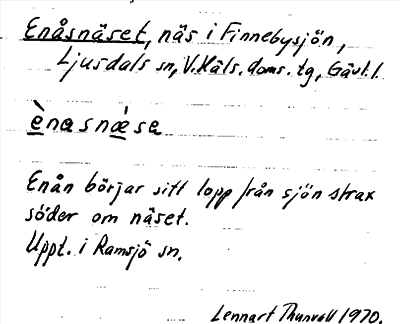 Enåsnäset, näs i Finnebysjön,
Ljusdals sn, V. Häls. doms. tg, Gävl. l.
ènasnǽsa
Enån börjar sitt lopp från sjön strax
söder om näset.
Uppt. i Ramsjö sn.
Lennart Thunvall 1970.